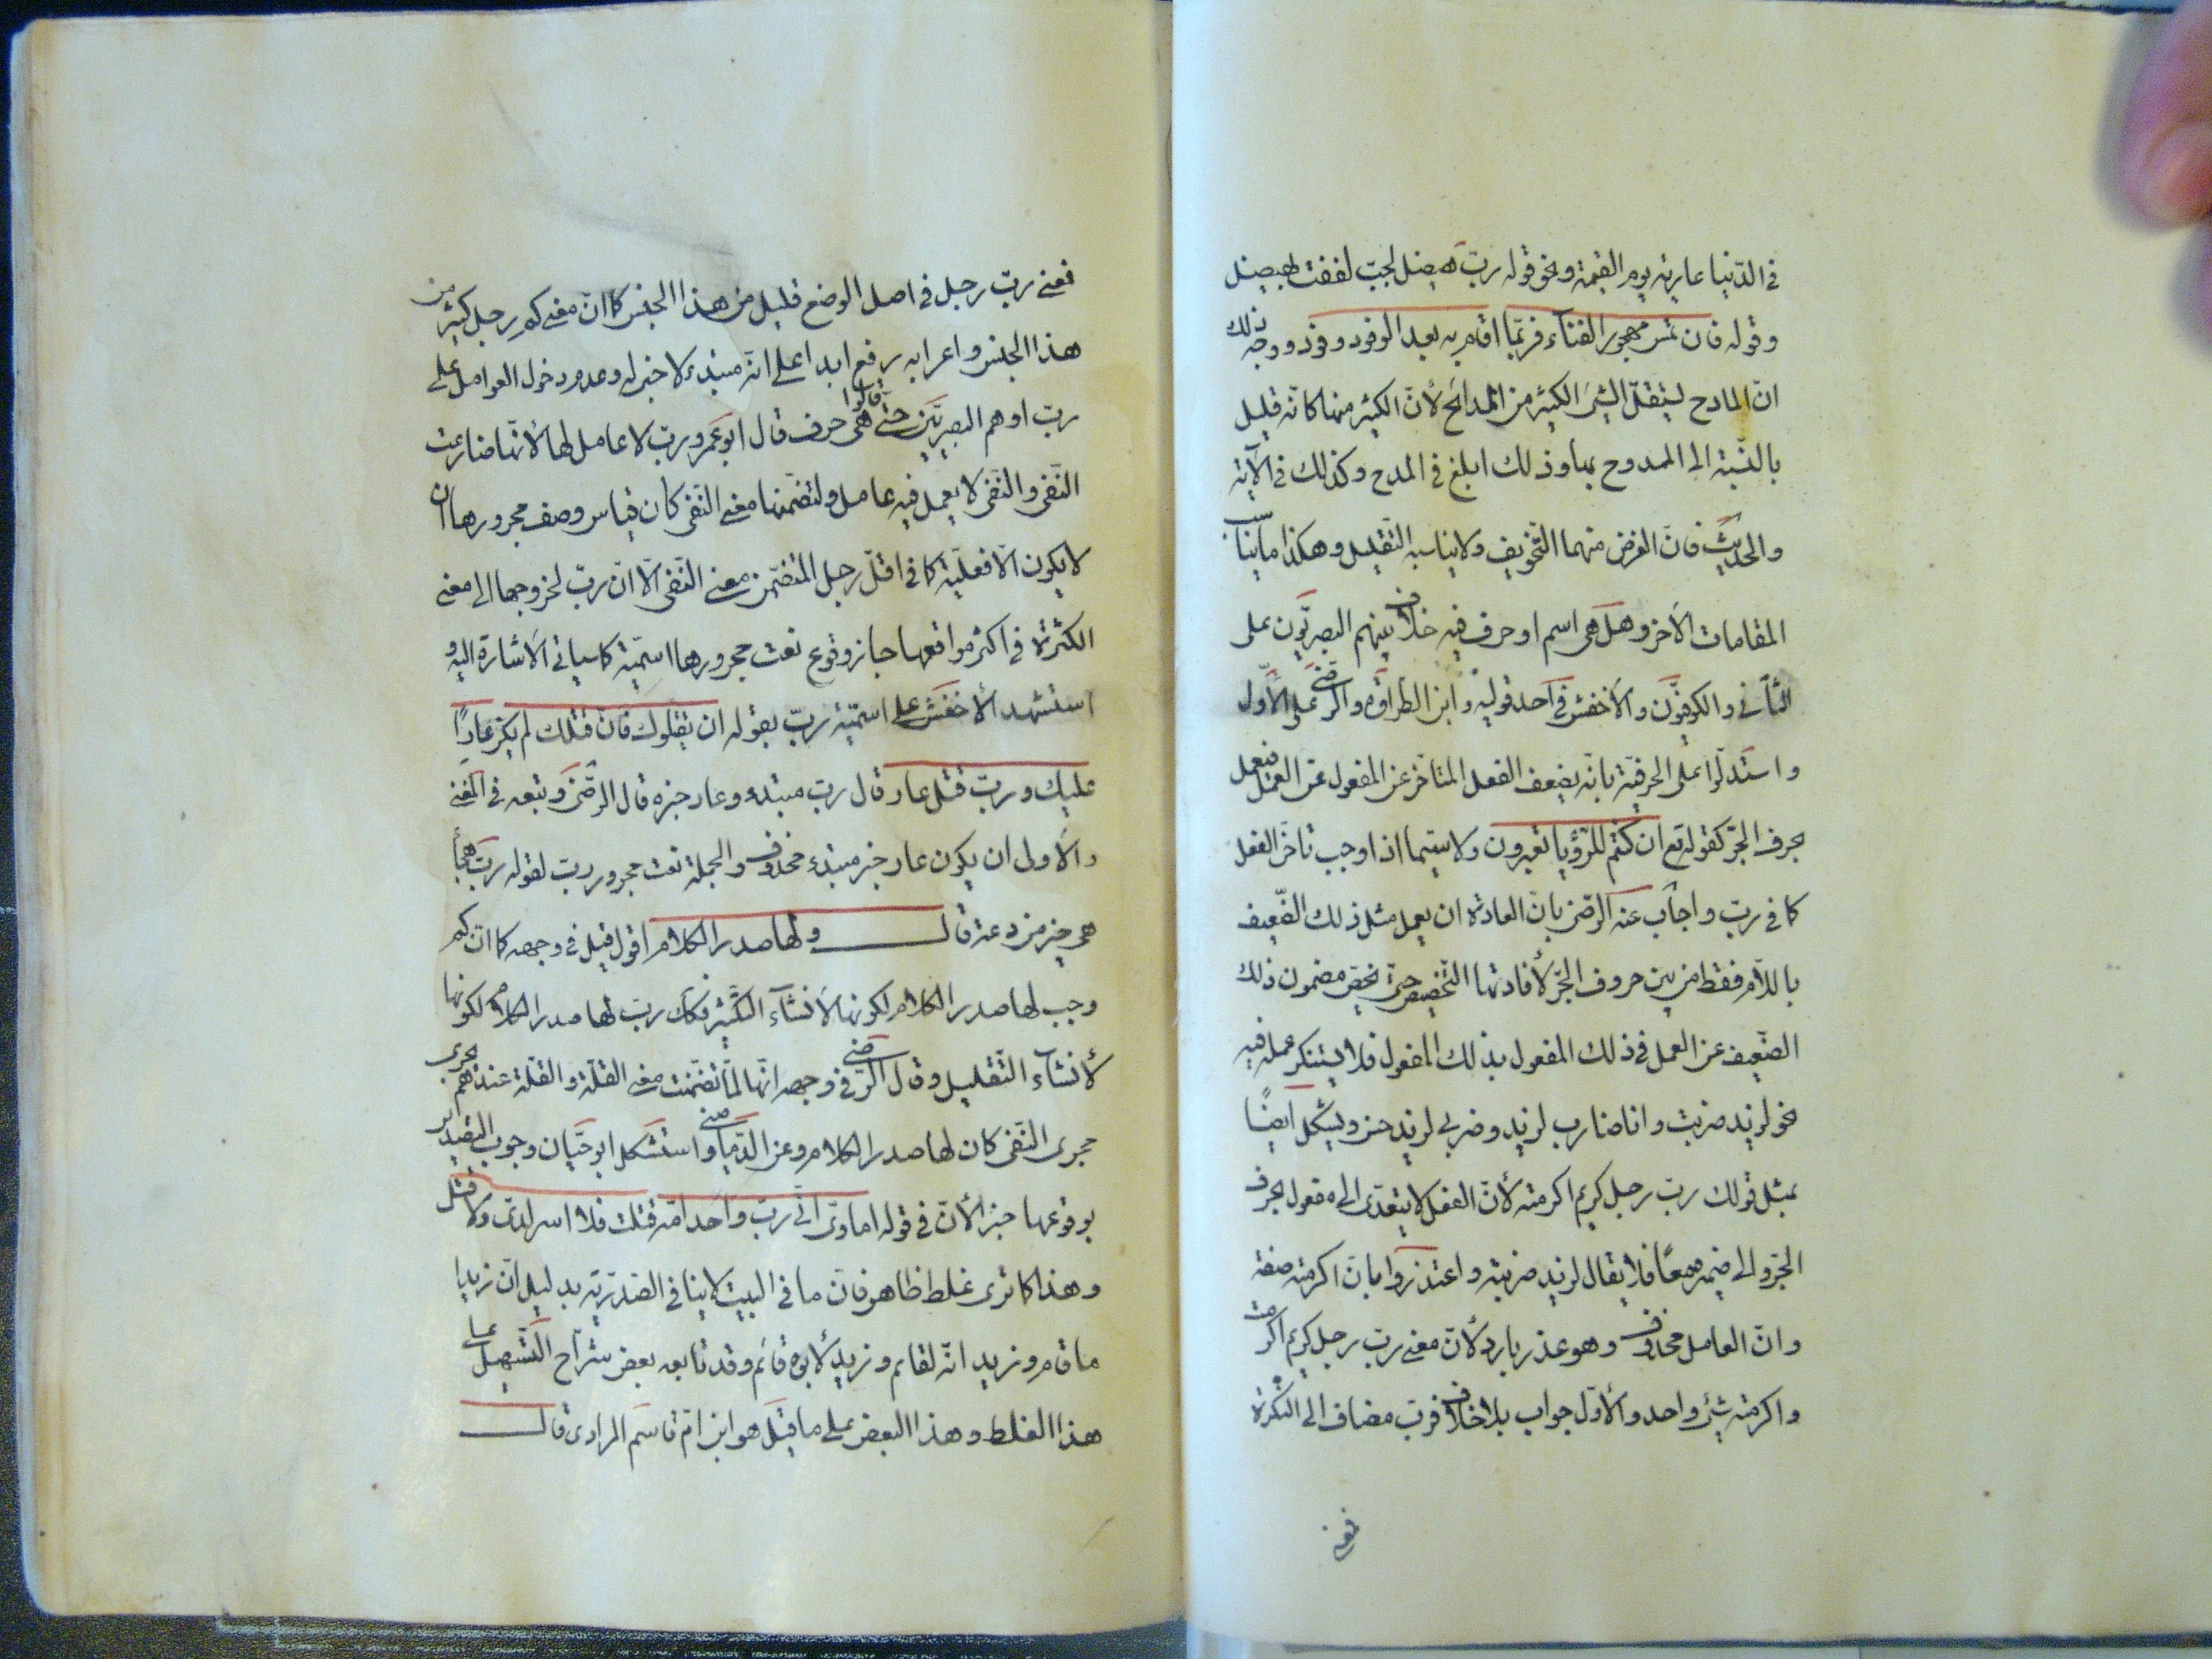 فى الدّنيا عارية يوم القيمة ونحو قوله ربّ هيضل لجب لففت بهيضل
وقوله فان تمس مهجور الفنآء فربّما اقام به بعد الوفود وفود ووجه ذلك
انّ المادح ليتقلّل الشئ الكثير من المدائح لأنّ الكثير منها كانّه قليل
بالنّسبة الى الممدوح بها وذلك ابلغ فى المدح وكذلك فى الآية
والحديث فانّ الغرض منهما التّخويف ولا يناسبه التّقليل وهكذا ما يناسب
المقامات الأخر وهل هى اسم او حرف فيه خلاف بينهم البصريّون على
الثّانى والكوفيّون والأخفش فى احد قوليه وابن الطراوة والرّضى على الأوّل
واستدلّوا على الحرفيّة بانّه يضعف الفعل المتأخّر عن المفعول عن العمل فيعمل
بحرف الجرّ كقوله تع ان كنتم للرّؤيا تعبرون ولا سيّما اذا وجب تأخّر الفعل
كما فى ربّ واجاب عنه الرّضى بانّ العادة ان يعمل مثل ذلك الضّعيف
باللّام فقط من بين حروف الجرّ لأفادتها التّخصيص حتّى يختصّ مضمون ذلك
الضّعيف عن العمل فى ذلك المفعول بذلك المفعول فلا يستنكر عمله فيه
نحو لزيد ضربت وانا ضارب لزيد وضربى لزيد حسن ويشكل ايضًا
بمثل قولك ربّ رجل كريم اكرمته لأنّ الفعل لا يتعدّى الى مفعول بحرف
الجرّ والى ضميره معًا فلا يقال لزيد ضربته واعتذروا بانّ اكرمته صفة
وانّ العامل محذوف وهو عذر بارد لأنّ معنى ربّ رجل كريم اكرمت
واكرمته شئ واحد والأوّل جواب بلا خلاف فربّ مضاف الى النّكرة
فمعنى
فمعنى ربّ رجل فى اصل الوضع قليل من هذا الجنس كما انّ معنى كم رجل كثير من
هذا الجنس واعرابه رفع ابدا على انّه مبتدء لا خبر له وعدم دخول العوامل على
ربّ اوهم البصريّين حتّى قالوا هى حرف قال ابو عمرو ربّ لا عامل لها لأنّها ضارعت
النّفى والنّفى لا يعمل فيه عامل ولتضمّنها معنى النّفى كان قياس وصف مجرورها ان
لا يكون الّا فعليّة كما فى اقلّ رجل المتضمّن معنى النّفى الّا انّ ربّ لخروجها الى معنى
الكثرة فى اكثر مواقعها جاز وقوع نعت مجرورها اسميّة كما سيأتى الأشارة اليه و
استشهد الأخفش على اسميّة ربّ بقوله ان يقتلوك فانّ قتلك لم يكن عارًا
عليك وربّ قتل عار قال ربّ مبتدء وعار خبره قال الرّضى وتبعه فى المغنى
والأولى ان يكون عار خبر مبتدء محذوف والجملة نعت مجرور ربّ لقوله ربّ هيجا
هى خير من دعة قال ولها صدر الكلام اقول قيل فى وجهه كما انّ كم
وجب لها صدر الكلام لكونها لأنشآء التّكثير فكذلك ربّ لها صدر الكلام لكونها
لأنشآء التّقليل وقال الرّضى فى وجهه انّها لمّا تضمّنت معنى القلّة والقلّة عندهم تجرى
مجرى النّفى كان لها صدر الكلام وعن الدّمامينى واستشكل ابو حيّان وجوب التّصدير
بوقوعها خبرا لأنّ فى قوله اماوىّ انّى ربّ واحد امّه قتلت فلا اسر لدىّ ولا قتل
وهذا كما ترى غلط ظاهر فانّ ما فى البيت لا ينافى الصّدريّة بدليل انّ زيدا
ما قام وزيد انّه لقائم وزيد لأبوه قائم وقد تابعه بعض شرّاح التّسهيل على
هذا الغلط وهذا البعض على ما قيل هو ابن امّ قاسم المرادى قال